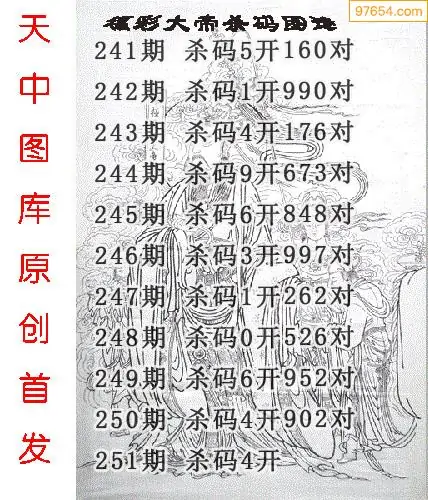 97654.com
福彩大帝杀码图迷
天中图库原创首发
241期 杀码5开160对
242期 杀码1开990对
243期 杀码4开176对
244期 杀码9开673对
245期 杀码6开848对
246期 杀码3开997对
247期 杀码1开262对
248期 杀码0开526对
249期 杀码6开952对
250期 杀码4开902对
251期 杀码4开